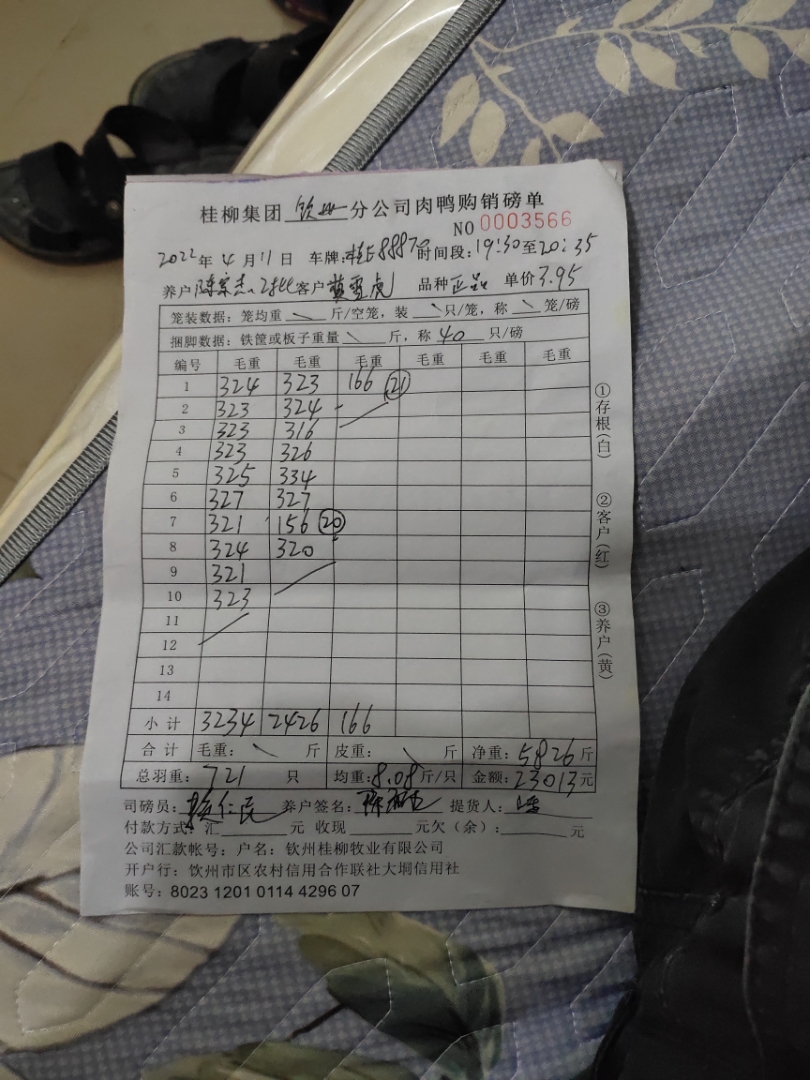 桂柳集团 钦州 分公司肉鸭购销磅单
NO 0003566
2022年4月11日 车牌:桂E88870 时间段:19:30至20:35
养户 陈宗杰 客户 黄雪虎 品种 正品 单价 3.95
笼装数据:笼均重 \ 斤/空笼,装 \ 只/笼,称 \ 笼/磅
捆脚数据:铁筐或板子重量 \ 斤,称 40 只/磅
编号 毛重 毛重 毛重 毛重 毛重 毛重
1 324 323 166 ㉑
2 323 324
3 323 316
4 323 326
5 325 334
6 327 327
7 321 156 ⑳
8 324 320
9 321
10 323
11
12
13
14
小计 3234 2426 166
合计 毛重: \ 斤 皮重: \ 斤 净重:5826斤
总羽重:721 只 均重:8.08斤/只 金额:23013元
司磅员: 仁民 养户签名: 提货人:
付款方式:汇 元 收现 元欠(余): 元
公司汇款帐号:户名:钦州桂柳牧业有限公司
开户行:钦州市区农村信用合作联社大垌信用社
账号:8023 1201 0114 4296 07
①存根(白)
②客户(红)
③养户(黄)